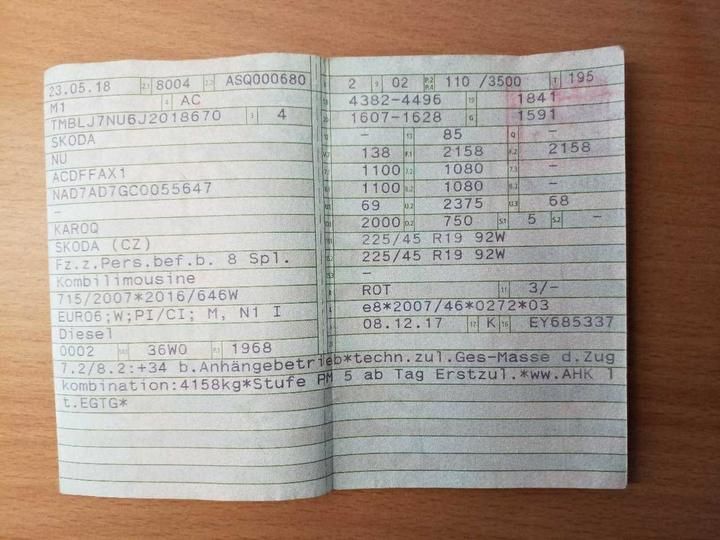 23.05.18 2.1 8004 2.2 ASQ000680
M1 4 AC
TMBLJ7NU6J2018670 3 4
SKODA
NU
ACDFFAX1
NAD7AD7GC0055647
-
KAROQ
SKODA (CZ)
Fz.z.Pers.bef.b. 8 Spl.
Kombilimousine
715/2007*2016/646W
EURO6;W;PI/CI; M, N1 I
Diesel
0002 36W0 P.1 1968
2 9 02 P.2 P.4 110 /3500 T 195
18 4382-4496 19 1841
20 1607-1628 G 1591
- 13 85 Q -
138 F.1 2158 F.2 2158
1100 7.2 1080 7.3 -
1100 8.2 1080 -
69 U.2 2375 U.3 68
2000 O.2 750 S.1 5 S.2 -
225/45 R19 92W
225/45 R19 92W
-
ROT 11 3/-
e8*2007/46*0272*03
08.12.17 17 K 16 EY685337
7.2/8.2:+34 b.Anhängebetrieb*techn.zul.Ges-Masse d.Zug
kombination:4158kg*Stufe PM 5 ab Tag Erstzul.*ww.AHK l
t.EGTG*